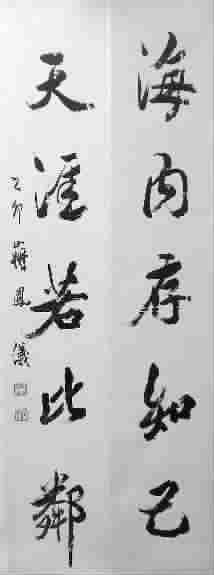 海内存知己
天涯若比鄰
乙卯 蔣鳳儀